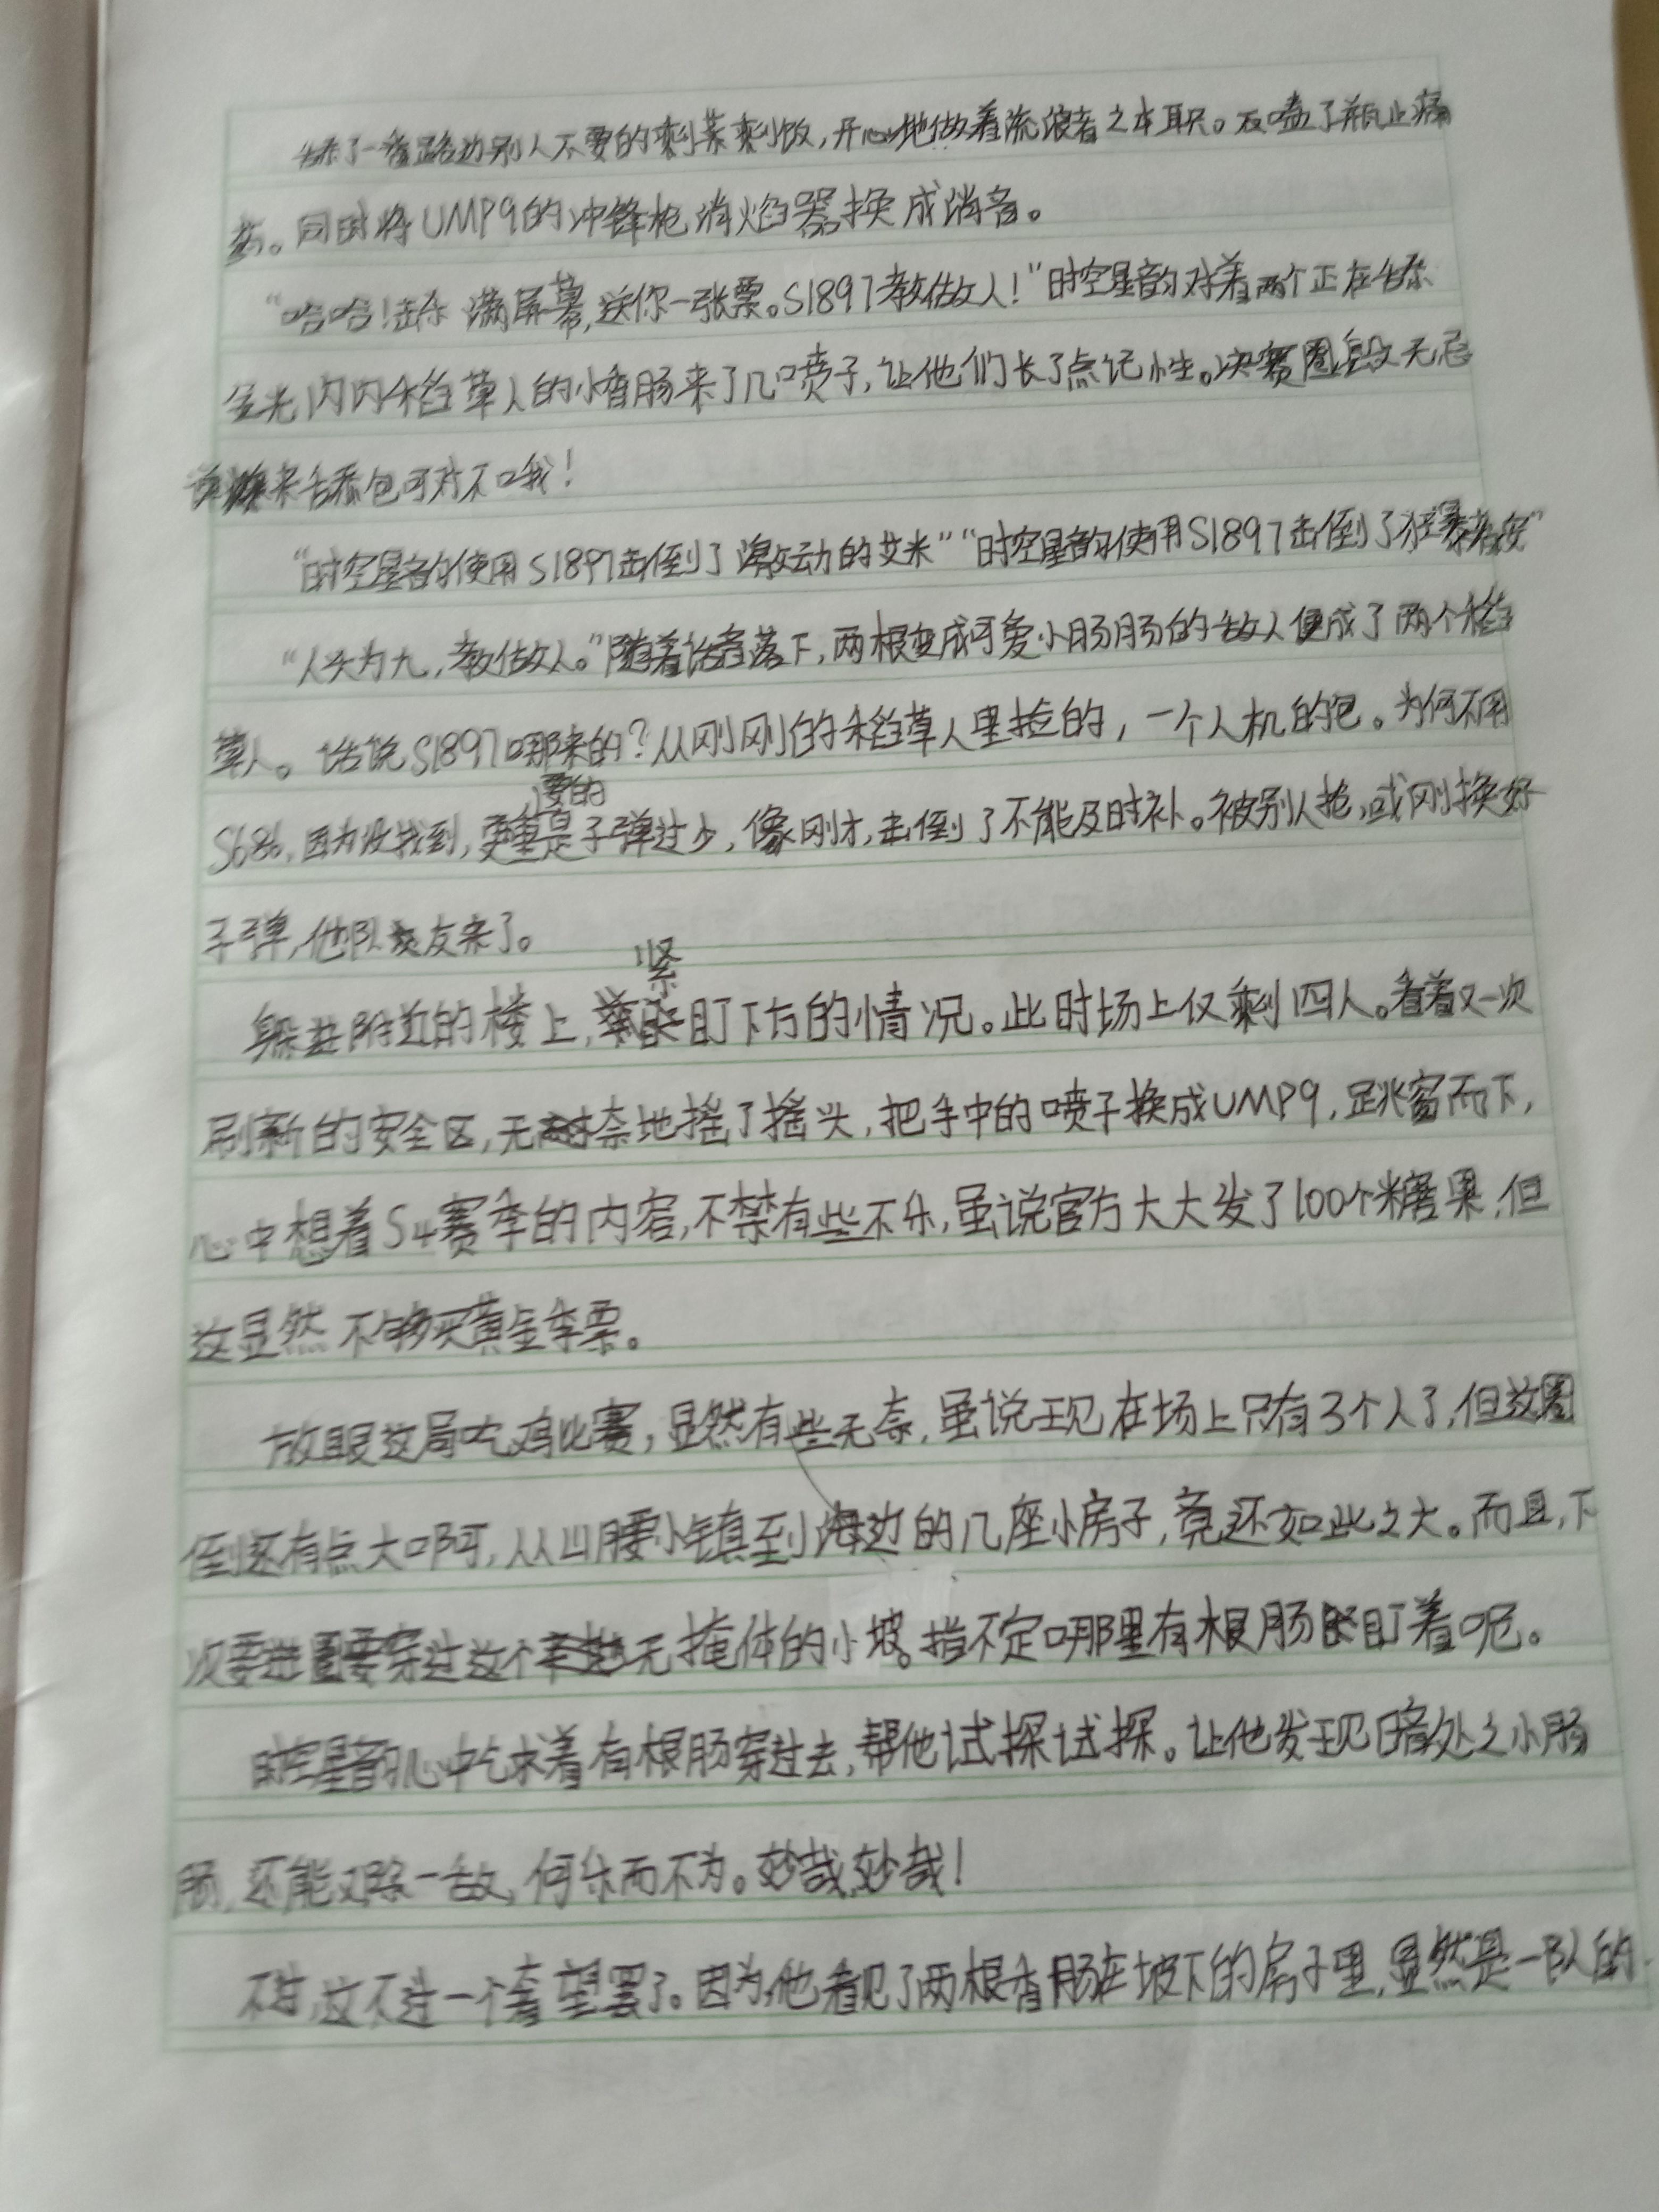 舔了一番路边别人不要的剩菜剩饭,开心地做着流浪者之本职。又嗑了瓶止痛
药。同时将UMP9的冲锋枪消焰器换成消音。
“哈哈!击杀 满屏幕,送你一张票。S1897教做人!”时空星韵对着两个正在舔
金光闪闪稻草人的小香肠来了几喷子,让他们长了点记性。决赛圈肆无忌
来舔包可对不哦!
“时空星韵使用S1897击倒了激动的艾米”“时空星韵使用S1897击倒了
“人头为九,教做人。”随着话音落下,两根变成可爱小肠肠的敌人便成了两个稻
草人。话说S1897哪来的?从刚刚的稻草人里捡的,一个人机的包。为何不用
S686,因为没找到,更重要的是子弹过少,像刚才,击倒了不能及时补。被别人抢,或刚换好
子弹,他队友来了。
躲进附近的楼上,紧盯下方的情况。此时场上仅剩四人。看着又一次
刷新的安全区,无奈地摇了摇头,把手中的喷子换成UMP9,跳窗而下,
心中想着S4赛季的内容,不禁有些不乐,虽说官方大大发了100个糖果,但
这显然 不够买黄金季票。
放眼这局吃鸡比赛,显然有些无奈,虽说现在场上只有3个人了,但这圈
倒还有点大啊,从山腰小镇到海边的几座小房子,竟还如此之大。而且,下
次要进圈要穿过这个无掩体的小坡。指不定哪里有根肠盯着呢。
时空星韵心中乞求着有根肠穿过去,帮他试探试探。让他发现暗处之小肠
肠,还能又除一敌,何乐而不为。妙哉,妙哉!
不过,这不过一个奢望罢了。因为,他看见了两根香肠在坡下的房子里,显然是一队的